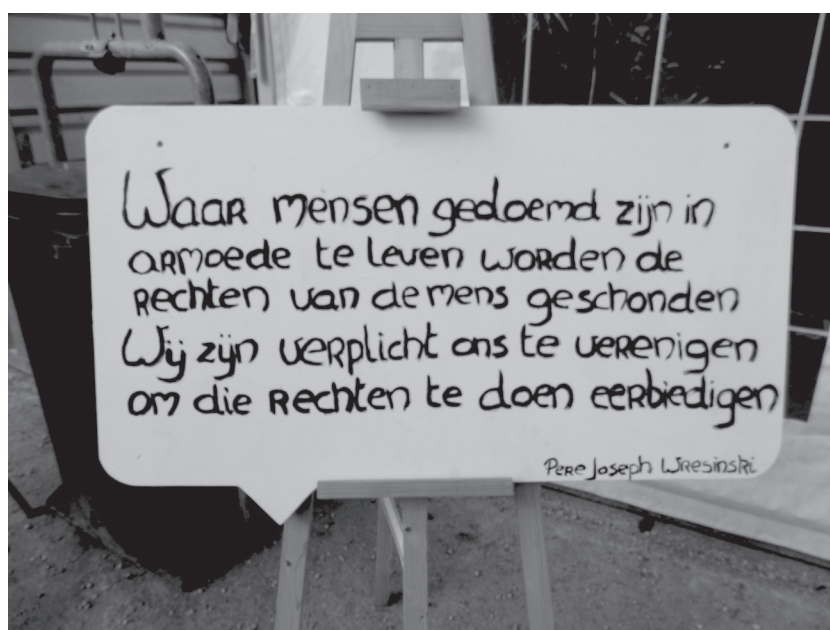 Waar mensen gedoemd zijn in
armoede te leven worden de
Rechten van de mens geschonden
Wij zijn verplicht ons te verenigen
om die Rechten te doen eerbiedigen
Pere Joseph Wresinski